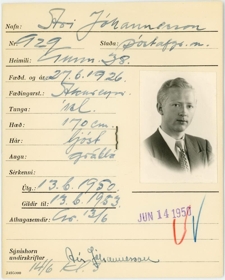 Nafn: Ari Jóhannesson
Nr. 929 Staða
Heimili: 38.
Fædd. og ár: 27.6.1926.
Fæðingarst.: Akureyri
Tunga: ísl.
Hæð: 170 cm
Hár: ljóst
Augu: gráblá
Sérkenni:
Útg. 13.6.1950.
Gildir til: 13.6.1953
Athugasemdir: 13/6
JUN 14 1950
Eiginhandar
undirskrift: Ari Jóhannesson
14/6